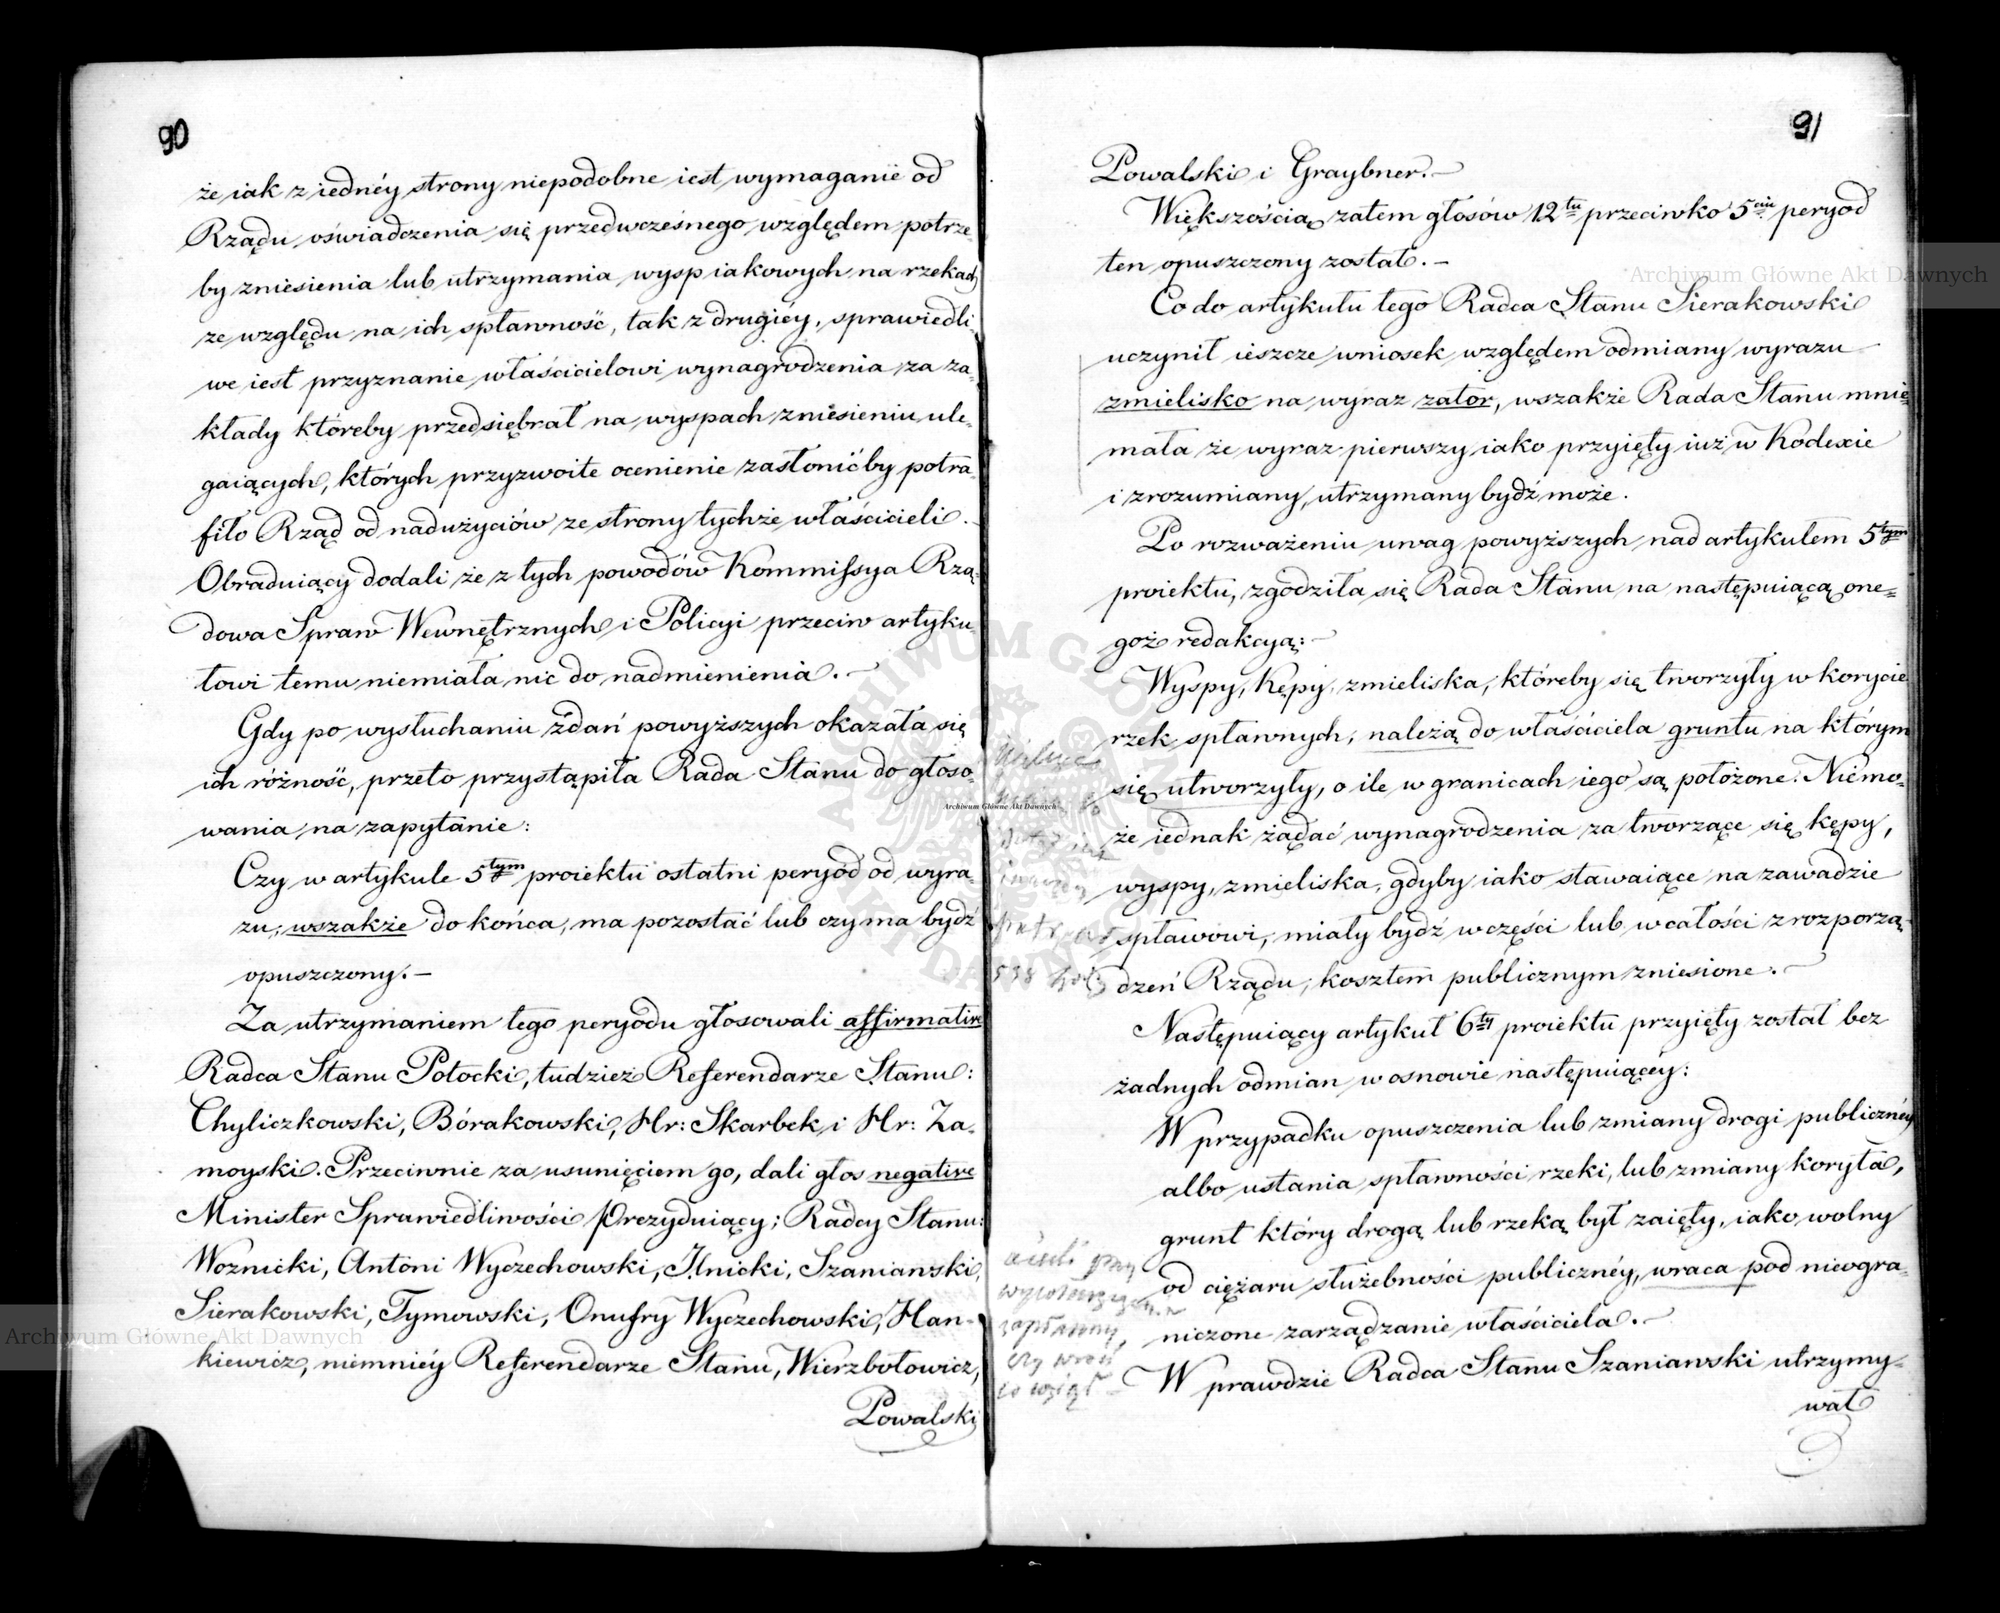 90
że iak z iednéy strony niepodobne iest wymaganie od
Rządu oświadczenia się przedwcześnego względem potrze-
by zniesienia lub utrzymania wysp iakowych na rzekach
ze względu na ich spławność, tak z drugiéy, sprawiedli-
we iest przyznanie właścicielowi wynagrodzenia za za-
kłady któreby przedsiębrał na wyspach zniesieniu ule-
gaiących, których przyzwoite ocenienie zasłonićby potra-
fiło Rząd od nadużyciów ze strony tychże właścicieli.
Obraduiący dodali że z tych powodów Kommissya Rzą-
dowa Spraw Wewnętrznych i Policyi przeciw artyku-
łowi temu niemiała nic do nadmienienia. —
Gdy po wysłuchaniu zdań powyższych okazała się
ich różność, przeto przystąpiła Rada Stanu do głoso-
wania na zapytanie:
Czy w artykule 5tym proiektu ostatni peryod od wyra-
zu, wszakże do końca, ma pozostać lub czy ma bydź
opuszczony. —
Za utrzymaniem tego peryodu głosowali affirmative
Radca Stanu Potocki, tudzież Referendarze Stanu:
Chyliczkowski, Bórakowski, Hr: Skarbek i Hr: Za-
moyski. Przeciwnie za usunięciem go, dali głos negative
Minister Sprawiedliwości Prezyduiący; Radcy Stanu:
Woznicki, Antoni Wyczechowski, Ilnicki, Szaniawski,
Sierakowski, Tymowski, Onufry Wyczechowski, Han-
kiewicz, niemniéy Referendarze Stanu, Wierzbołowicz,
Powalski
91
Powalski i Graybner. —
Większością zatem głosów 12tu przeciwko 5ciu peryod
ten opuszczony został. —
Co do artykułu tego Radca Stanu Sierakowski
uczynił ieszcze wniosek względem odmiany wyrazu
zmielisko na wyraz zator, wszakże Rada Stanu mnie-
mała że wyraz pierwszy iako przyięty iuż w Kodexie
i zrozumiany, utrzymany bydź może.
Po rozważeniu uwag powyższych nad artykułem 5tym
proiektu, zgodziła się Rada Stanu na następuiącą one-
goż redakcyą: —
Wyspy, Kępy, zmieliska, któreby się tworzyły w korycie
rzek spławnych, należą do właściciela gruntu na którym
się utworzyły, o ile w granicach iego są położone. Niemo-
że iednak żądać wynagrodzenia za tworzące się kępy,
wyspy, zmieliska, gdyby iako stawaiące na zawadzie
spławowi, miały bydź w części lub w całości z rozporzą-
dzeń Rządu, kosztem publicznym zniesione. —
538
Następuiący artykuł 6ty proiektu przyięty został bez
żadnych odmian w osnowie następuiącéy:
W przypadku opuszczenia lub zmiany drogi publicznéy
albo ustania spławności rzeki, lub zmiany koryta,
grunt który drogą lub rzeką był zaięty, iako wolny
od ciężaru służebności publicznéy, wraca pod nieogra-
niczone zarządzanie właściciela. —
W prawdzie Radca Stanu Szaniawski utrzymy-
wał
Archiwum Główne Akt Dawnych
Archiwum Główne Akt Dawnych
Archiwum Główne Akt Dawnych
ARCHIWUM GŁÓWNE AKT DAWNYCH